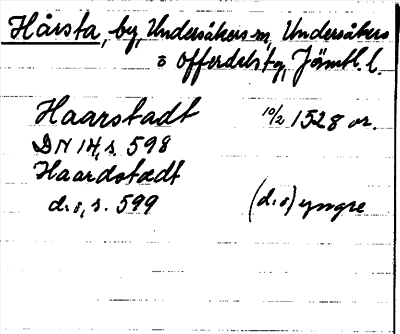 Hårsta, by, Undersåkers sn, Undersåkers
o Offerdals tg, Jämtl. l.
Haarstadt 10/2 1528 or.
DN 14, s. 598
Haardstædt
d:o, s. 599 (d:o) yngre